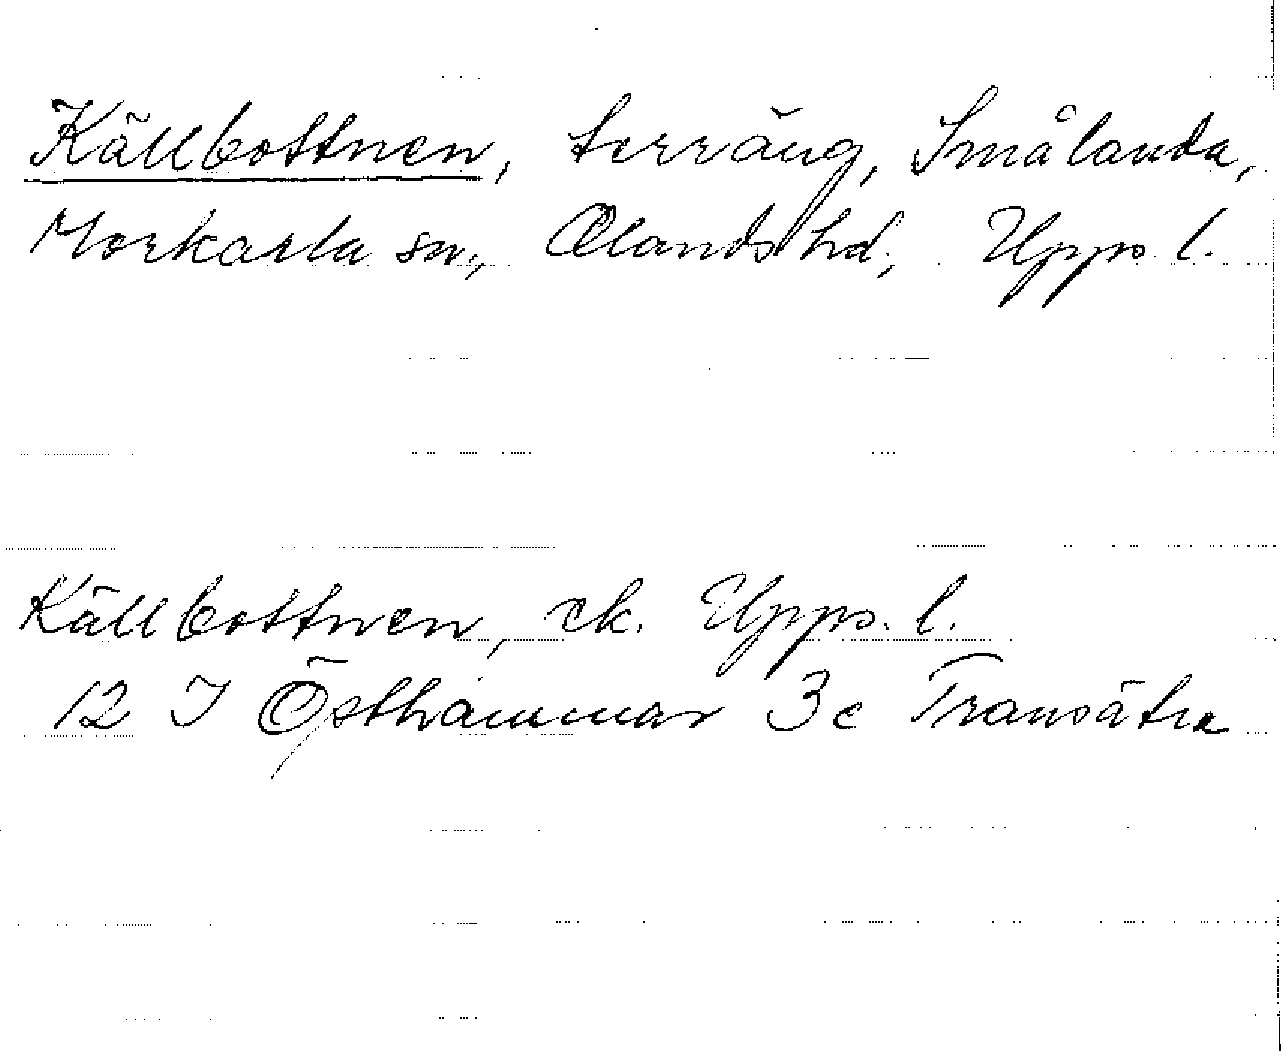 Källbottnen, terräng, Smålanda,
Morkarla sn., Olands hd, Upps. l.
Källbottnen, ek. Upps. l.
12 I Östhammar 3 c Transätra